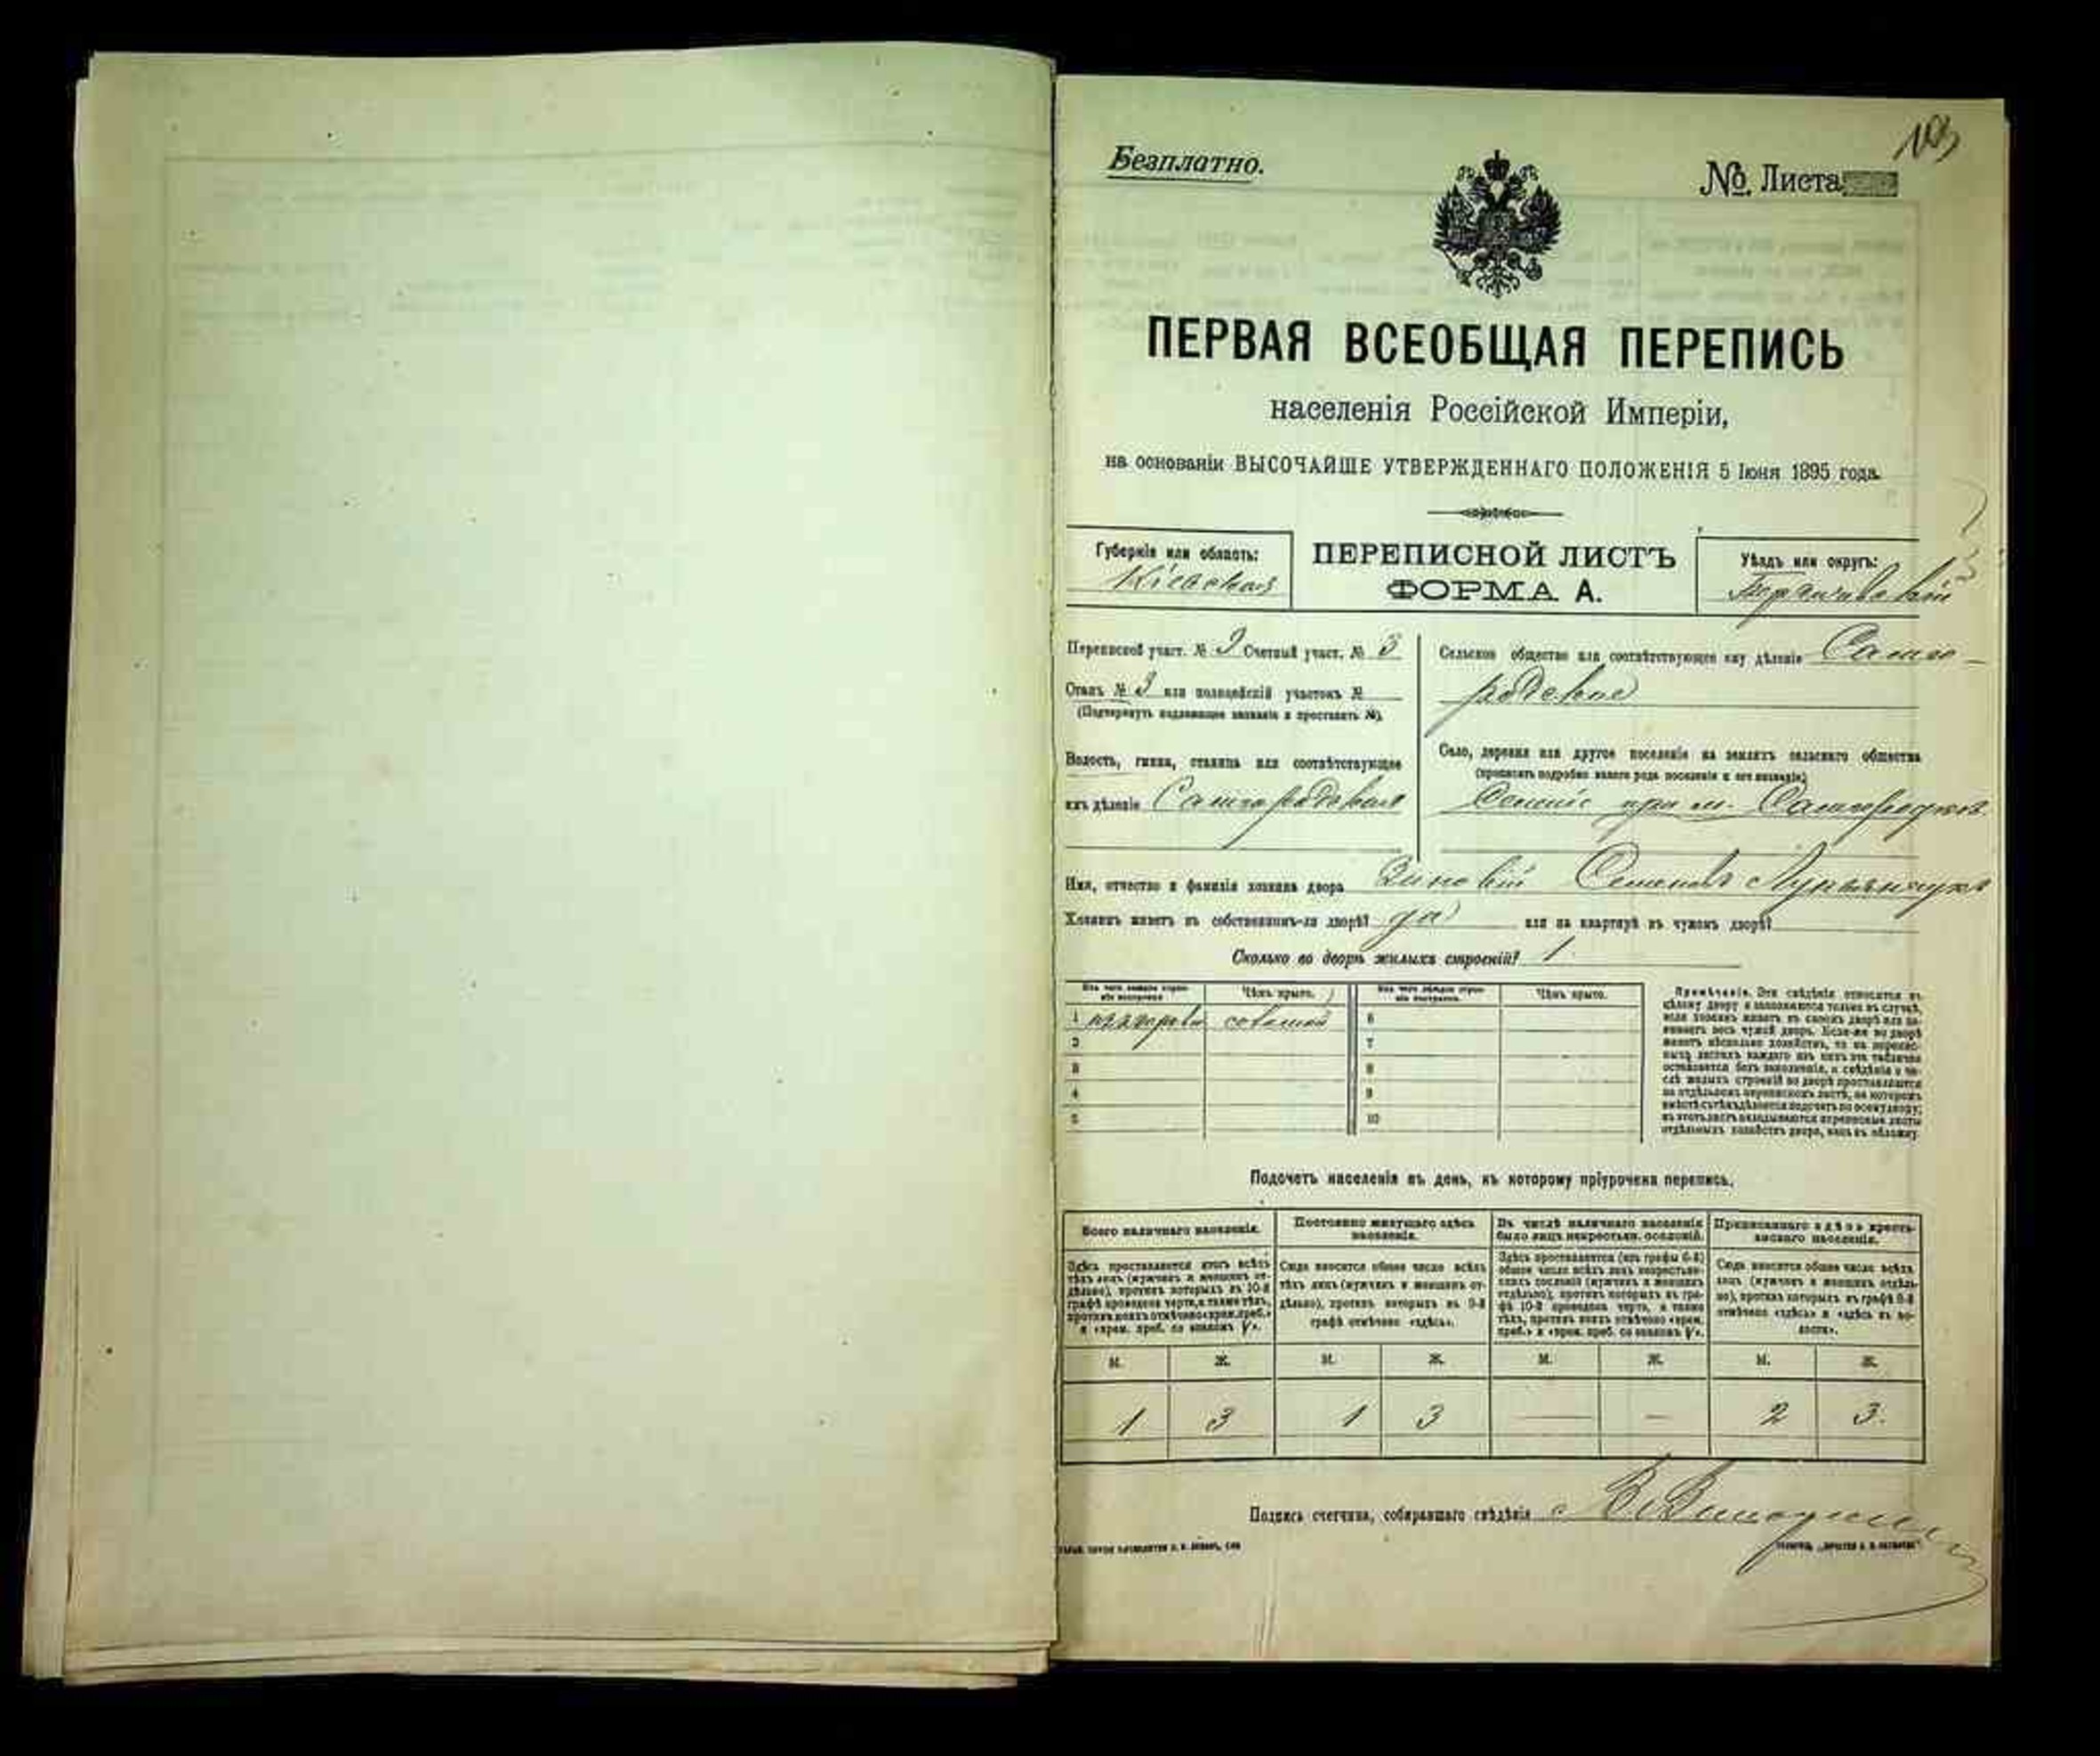 103
Безплатно.
№ Листа
ПЕРВАЯ ВСЕОБЩАЯ ПЕРЕПИСЬ
населенія Россійской Имперіи,
на основаніи ВЫСОЧАЙШЕ УТВЕРЖДЕННАГО ПОЛОЖЕНІЯ 5 Іюня 1895 года.
Губернія или область:
Кіевская
ПЕРЕПИСНОЙ ЛИСТЪ
ФОРМА А.
Уѣздъ или округъ:
Бердичевскій
Переписной участ. № 2 Счетный участ. № 3
Станъ № 3 или полицейскій участокъ №
(Подчеркнуть надлежащее названіе и проставить №).
Волость, гмина, станица или соотвѣтствующее
имъ дѣленіе Самгородская
Сельское общество или соотвѣтствующее ему дѣленіе Самго-
родское
Село, деревня или другое поселеніе на земляхъ сельскаго общества
(прописать подробно какого рода поселеніе и его названіе)
при м. Самгородкѣ
Имя, отчество и фамилія хозяина двора Зиновій Семеновъ
Хозяинъ живетъ въ собственномъ-ли дворѣ? да или на квартирѣ въ чужомъ дворѣ?
Сколько во дворѣ жилыхъ строеній? 1.
Изъ чего каждое строеніе построено
Чѣмъ крыто.
Изъ чего каждое строеніе построено.
Чѣмъ крыто.
1 соломой 6
2 7
3 8
4 9
5 10
Примѣчаніе. Эти свѣдѣнія относятся къ
цѣлому двору и заполняются только въ случаѣ,
если хозяинъ живетъ въ своемъ дворѣ или занимаетъ
весь чужой дворъ. Если-же во дворѣ
живетъ нѣсколько хозяйствъ, то на переписныхъ
листахъ каждаго изъ нихъ эта табличка
оставляется безъ заполненія, а свѣдѣнія о числѣ
жилыхъ строеній во дворѣ проставляются
на отдѣльномъ переписномъ листѣ, на которомъ
вмѣстѣ съ тѣмъ дѣлается подсчетъ по всему двору;
въ этотъ листъ вкладываются переписные листы
отдѣльныхъ хозяйствъ двора, какъ въ обложку.
Подсчетъ населенія въ день, къ которому пріурочена перепись.
Всего наличнаго населенія.
Постоянно живущаго здѣсь населенія.
Въ числѣ наличнаго населенія было лицъ некрестьян. сословій.
Приписаннаго здѣсь крестьянскаго населенія.
Здѣсь проставляется итогъ всѣхъ
тѣхъ лицъ (мужчинъ и женщинъ отдѣльно),
противъ которыхъ въ 10-й
графѣ проведена черта, а также тѣхъ,
противъ коихъ отмѣчено «врем. преб.»
и «врем. преб. со знакомъ V».
Сюда вносится общее число всѣхъ
тѣхъ лицъ (мужчинъ и женщинъ отдѣльно),
противъ которыхъ въ 9-й
графѣ отмѣчено «здѣсь».
Здѣсь проставляется (изъ графы 6-й)
общее число всѣхъ лицъ некрестьянскихъ
сословій (мужчинъ и женщинъ
отдѣльно), противъ которыхъ въ графѣ
10-й проведена черта, а также
тѣхъ, противъ коихъ отмѣчено «врем.
преб.» и «врем. преб. со знакомъ V».
Сюда вносится общее число всѣхъ
лицъ (мужчинъ и женщинъ отдѣльно),
противъ которыхъ въ графѣ 8-й
отмѣчено «здѣсь» и «здѣсь въ волости».
М. Ж. М. Ж. М. Ж. М. Ж.
1 3 1 3 — — 2 3.
Подпись счетчика, собиравшаго свѣдѣнія